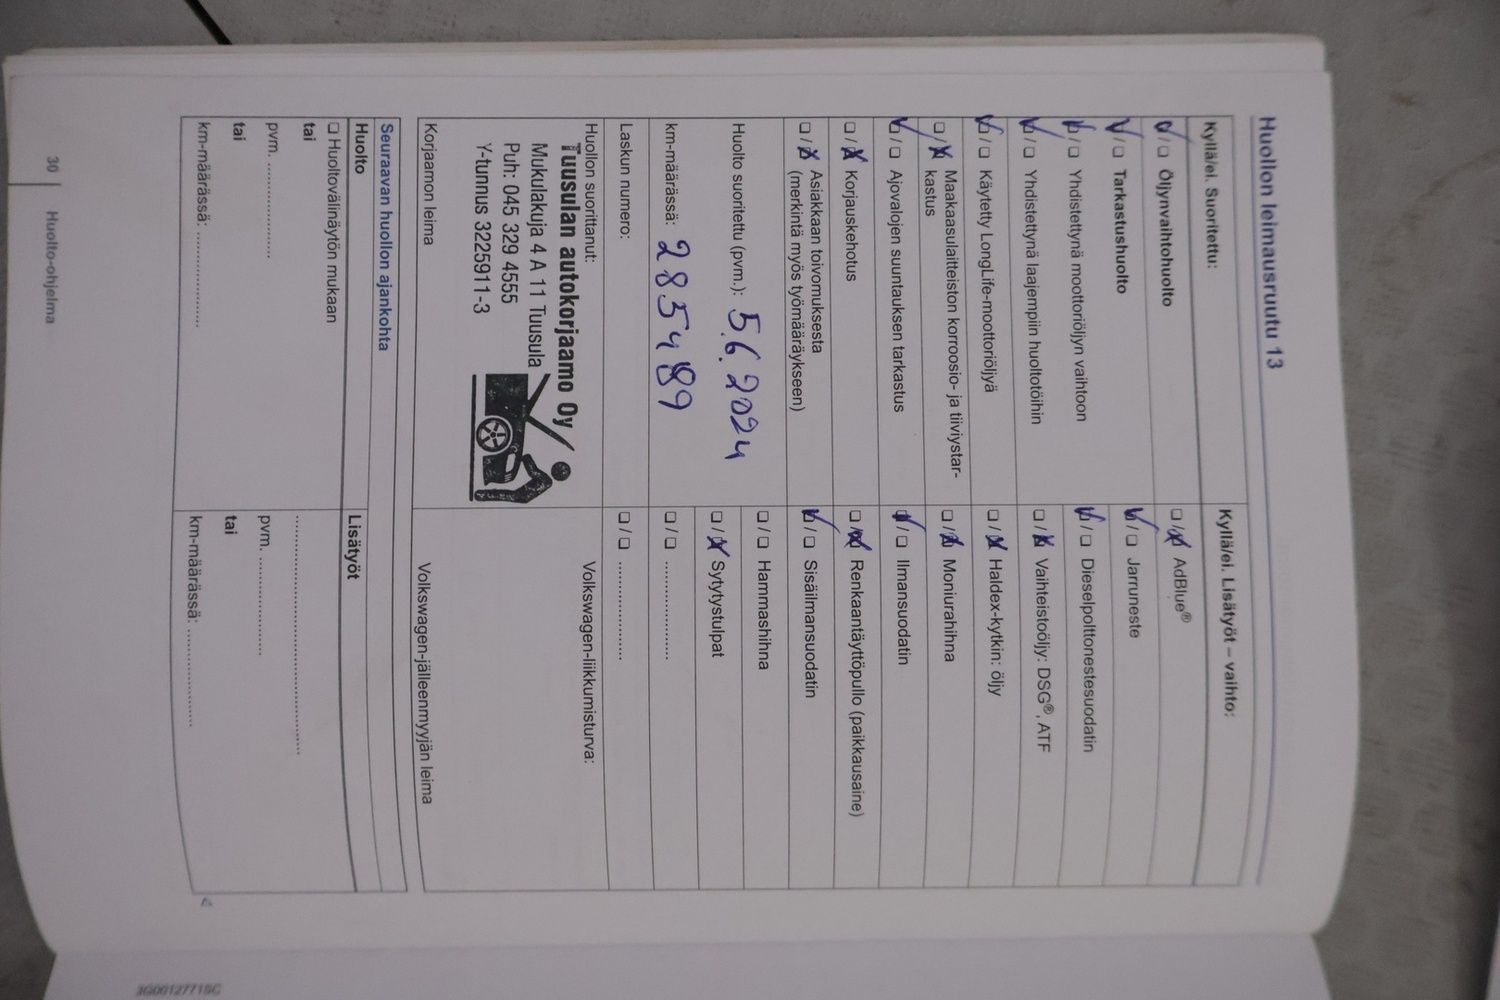 Huollon leimausruutu 13
Kyllä/ei. Suoritettu:
☑ / ☐ Öljynvaihtohuolto
☑ / ☐ Tarkastushuolto
☑ / ☐ Yhdistettynä moottoriöljyn vaihtoon
☑ / ☐ Yhdistettynä laajempiin huoltotöihin
☑ / ☐ Käytetty LongLife-moottoriöljyä
☐ / ☒ Maakaasulaitteiston korroosio- ja tiiviystar-
kastus
☑ / ☐ Ajovalojen suuntauksen tarkastus
☐ / ☒ Korjauskehotus
☐ / ☒ Asiakkaan toivomuksesta
(merkintä myös työmääräykseen)
Huolto suoritettu (pvm.): 5.6.2024
km-määrässä: 285489
Laskun numero:
Huollon suorittanut:
Tuusulan autokorjaamo Oy
Mukulakuja 4 A 11 Tuusula
Puh: 045 329 4555
Y-tunnus 3225911-3
Korjaamon leima
Kyllä/ei. Lisätyöt – vaihto:
☐ / ☒ AdBlue®
☑ / ☐ Jarruneste
☑ / ☐ Dieselpolttonestesuodatin
☐ / ☒ Vaihteistoöljy: DSG®, ATF
☐ / ☒ Haldex-kytkin: öljy
☐ / ☒ Moniurahihna
☑ / ☐ Ilmansuodatin
☐ / ☒ Renkaantäyttöpullo (paikkausaine)
☑ / ☐ Sisäilmansuodatin
☐ / ☐ Hammashihna
☐ / ☒ Sytytystulpat
☐ / ☐ ....................
☐ / ☐ ....................
Volkswagen-liikkumisturva:
Volkswagen-jälleenmyyjän leima
Seuraavan huollon ajankohta
Huolto
☐ Huoltovälinäytön mukaan
tai
pvm. ....................
tai
km-määrässä: ....................
Lisätyöt
........................................
pvm. ....................
tai
km-määrässä: ....................
30 Huolto-ohjelma
3G0012771SC